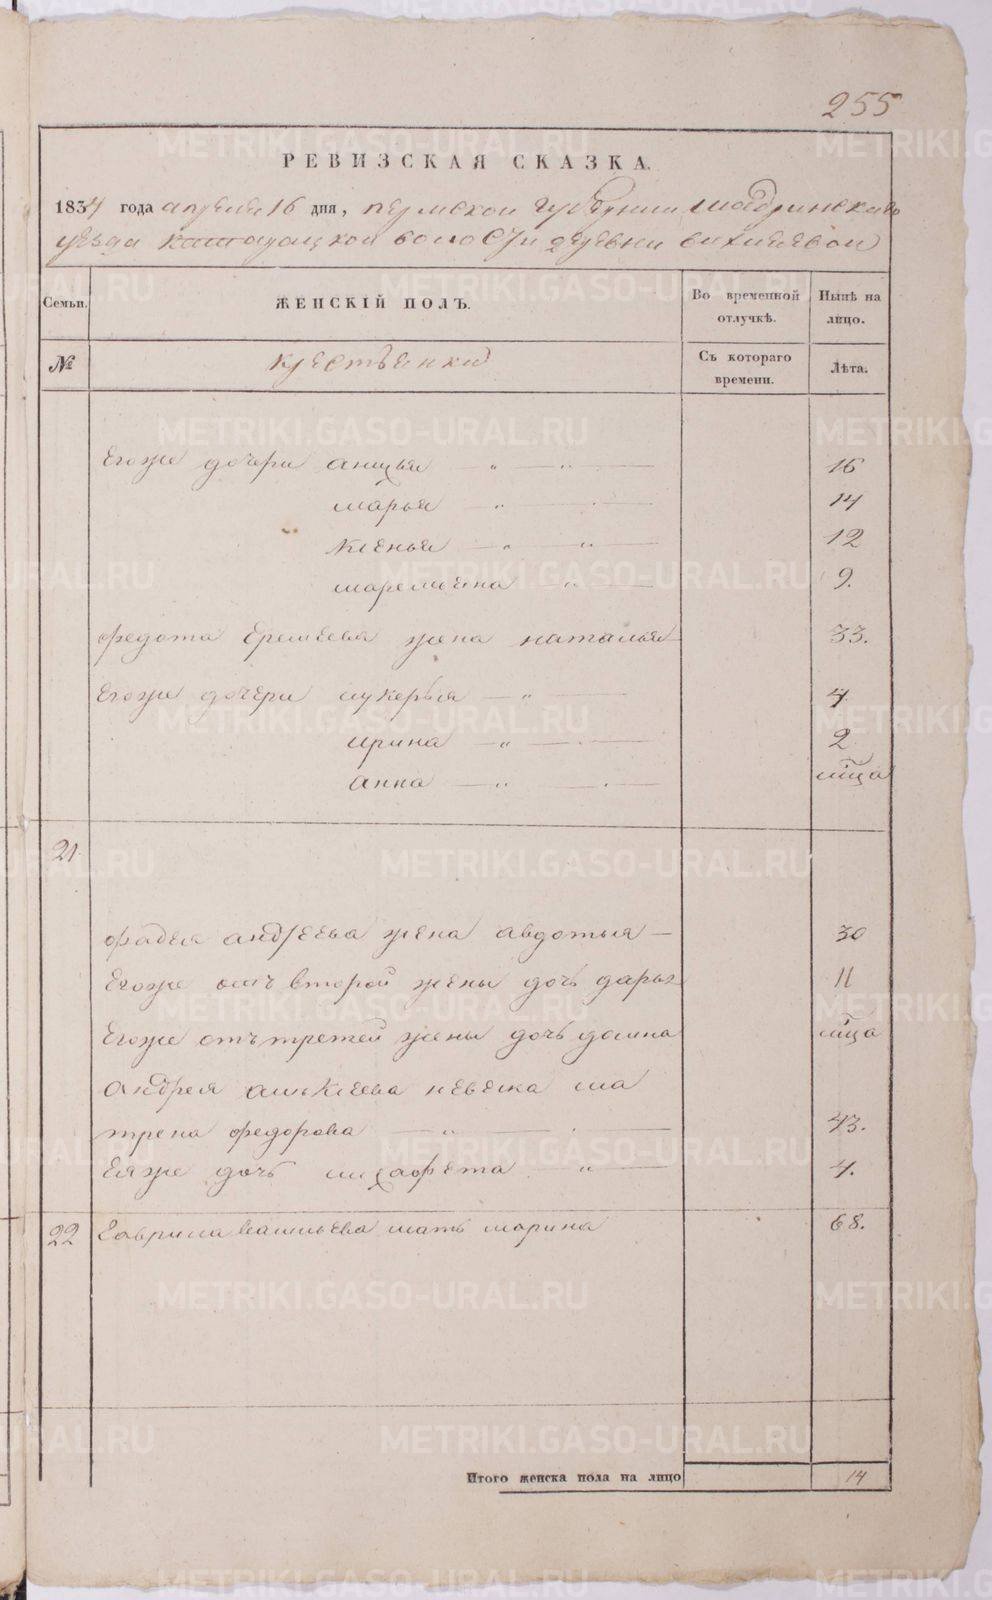 255
РЕВИЗСКАЯ СКАЗКА.
1834 года апреля 16 дня, пермской губернии шадринскаго
уезда волости деревни
Семьи. ЖЕНСКІЙ ПОЛЪ. Во временной отлучкѣ. Нынѣ на лицо.
№ крестьянки Съ котораго времени. Лѣта.
Егоже дочери анисья — „ — „ — 16
марья — „ — 14
ксенья — „ — „ — 12
маремьяна „ — 9.
федота еремеева жена наталья 33.
Егоже дочери лукерья — „ — 4
ирина — „ — 2
анна — „ — мца
21.
фадея андреева жена авдотья — 30
Егоже отъ второй жены дочь дарья 11
Егоже отъ третей жены дочь домна мца
андрея невеска ма
трена федорова — „ — 43.
Еяже дочь „ — 4.
22 Гаврила васильева мать марина 68.
Итого женска пола на лицо 14
METRIKI.GASO-URAL.RU